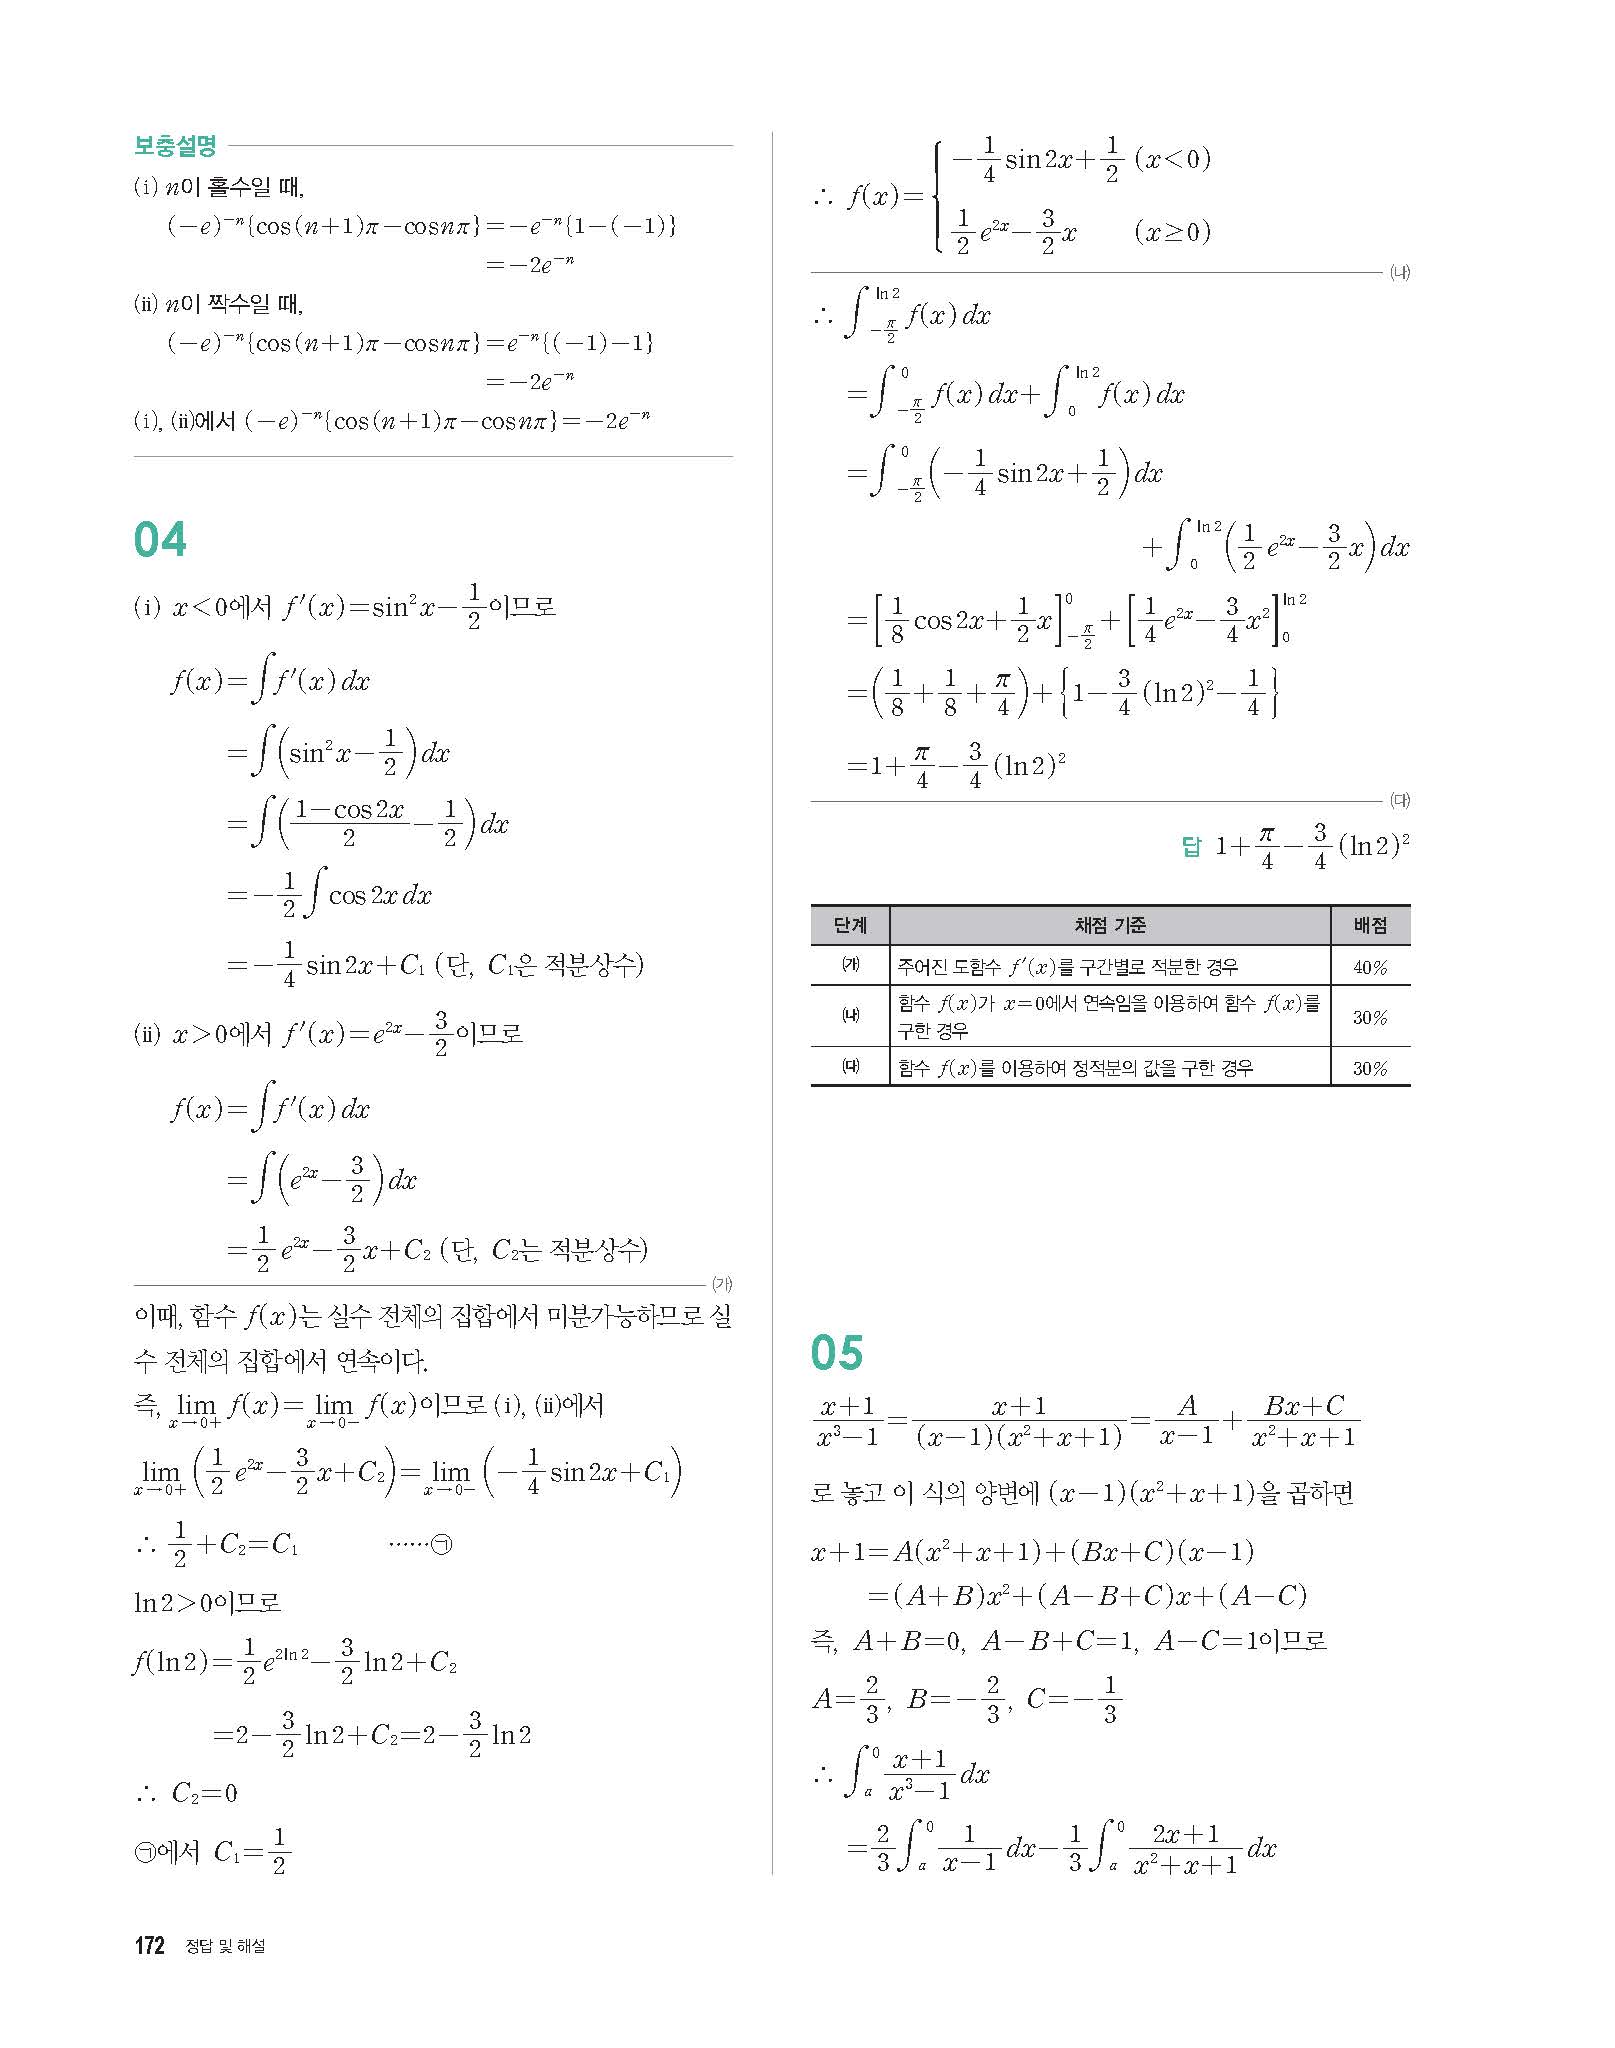 보충설명
(ⅰ) n이 홀수일 때,
(-e)⁻ⁿ{cos(n+1)π-cosnπ}=-e⁻ⁿ{1-(-1)}
=-2e⁻ⁿ
(ⅱ) n이 짝수일 때,
(-e)⁻ⁿ{cos(n+1)π-cosnπ}=e⁻ⁿ{(-1)-1}
=-2e⁻ⁿ
(ⅰ), (ⅱ)에서 (-e)⁻ⁿ{cos(n+1)π-cosnπ}=-2e⁻ⁿ
04
(ⅰ) x<0에서 f′(x)=sin²x-1/2이므로
f(x)=∫f′(x)dx
=∫(sin²x-1/2)dx
=∫((1-cos2x)/2-1/2)dx
=-1/2∫cos2xdx
=-1/4 sin2x+C₁ (단, C₁은 적분상수)
(ⅱ) x>0에서 f′(x)=e^{2x}-3/2이므로
f(x)=∫f′(x)dx
=∫(e^{2x}-3/2)dx
=1/2 e^{2x}-3/2 x+C₂ (단, C₂는 적분상수)
㈎
이때, 함수 f(x)는 실수 전체의 집합에서 미분가능하므로 실
수 전체의 집합에서 연속이다.
즉, lim_{x→0+} f(x)=lim_{x→0-} f(x)이므로 (ⅰ), (ⅱ)에서
lim_{x→0+}(1/2 e^{2x}-3/2 x+C₂)=lim_{x→0-}(-1/4 sin2x+C₁)
∴ 1/2+C₂=C₁ ……㉠
ln2>0이므로
f(ln2)=1/2 e^{2ln2}-3/2 ln2+C₂
=2-3/2 ln2+C₂=2-3/2 ln2
∴ C₂=0
㉠에서 C₁=1/2
∴ f(x)={ -1/4 sin2x+1/2 (x<0)
1/2 e^{2x}-3/2 x (x≥0)
㈏
∴ ∫_{-π/2}^{ln2} f(x)dx
=∫_{-π/2}^{0} f(x)dx+∫_{0}^{ln2} f(x)dx
=∫_{-π/2}^{0}(-1/4 sin2x+1/2)dx
+∫_{0}^{ln2}(1/2 e^{2x}-3/2 x)dx
=[1/8 cos2x+1/2 x]_{-π/2}^{0}+[1/4 e^{2x}-3/4 x²]_{0}^{ln2}
=(1/8+1/8+π/4)+{1-3/4(ln2)²-1/4}
=1+π/4-3/4(ln2)²
㈐
답 1+π/4-3/4(ln2)²
단계 채점 기준 배점
㈎ 주어진 도함수 f′(x)를 구간별로 적분한 경우 40%
㈏ 함수 f(x)가 x=0에서 연속임을 이용하여 함수 f(x)를
구한 경우 30%
㈐ 함수 f(x)를 이용하여 정적분의 값을 구한 경우 30%
05
(x+1)/(x³-1)=(x+1)/((x-1)(x²+x+1))=A/(x-1)+(Bx+C)/(x²+x+1)
로 놓고 이 식의 양변에 (x-1)(x²+x+1)을 곱하면
x+1=A(x²+x+1)+(Bx+C)(x-1)
=(A+B)x²+(A-B+C)x+(A-C)
즉, A+B=0, A-B+C=1, A-C=1이므로
A=2/3, B=-2/3, C=-1/3
∴ ∫_{a}^{0} (x+1)/(x³-1) dx
=2/3∫_{a}^{0} 1/(x-1) dx-1/3∫_{a}^{0} (2x+1)/(x²+x+1) dx
172 정답 및 해설